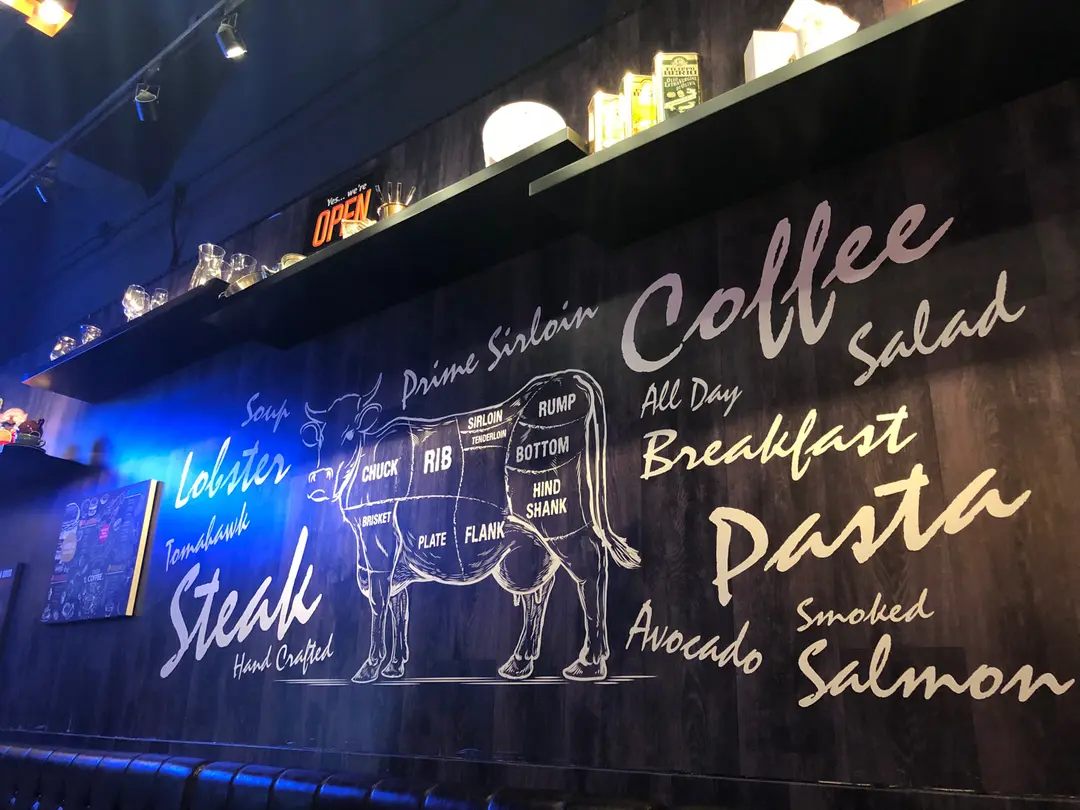 Yes... we're
OPEN
FILIPPO
BERIO
Prime Sirloin
Coffee
Salad
Soup
Lobster
Tomahawk
Steak
Hand Crafted
CHUCK
RIB
SIRLOIN
TENDERLOIN
RUMP
BOTTOM
HIND
SHANK
BRISKET
PLATE
FLANK
All Day
Breakfast
Pasta
Avocado
Smoked
Salmon
COFFEE